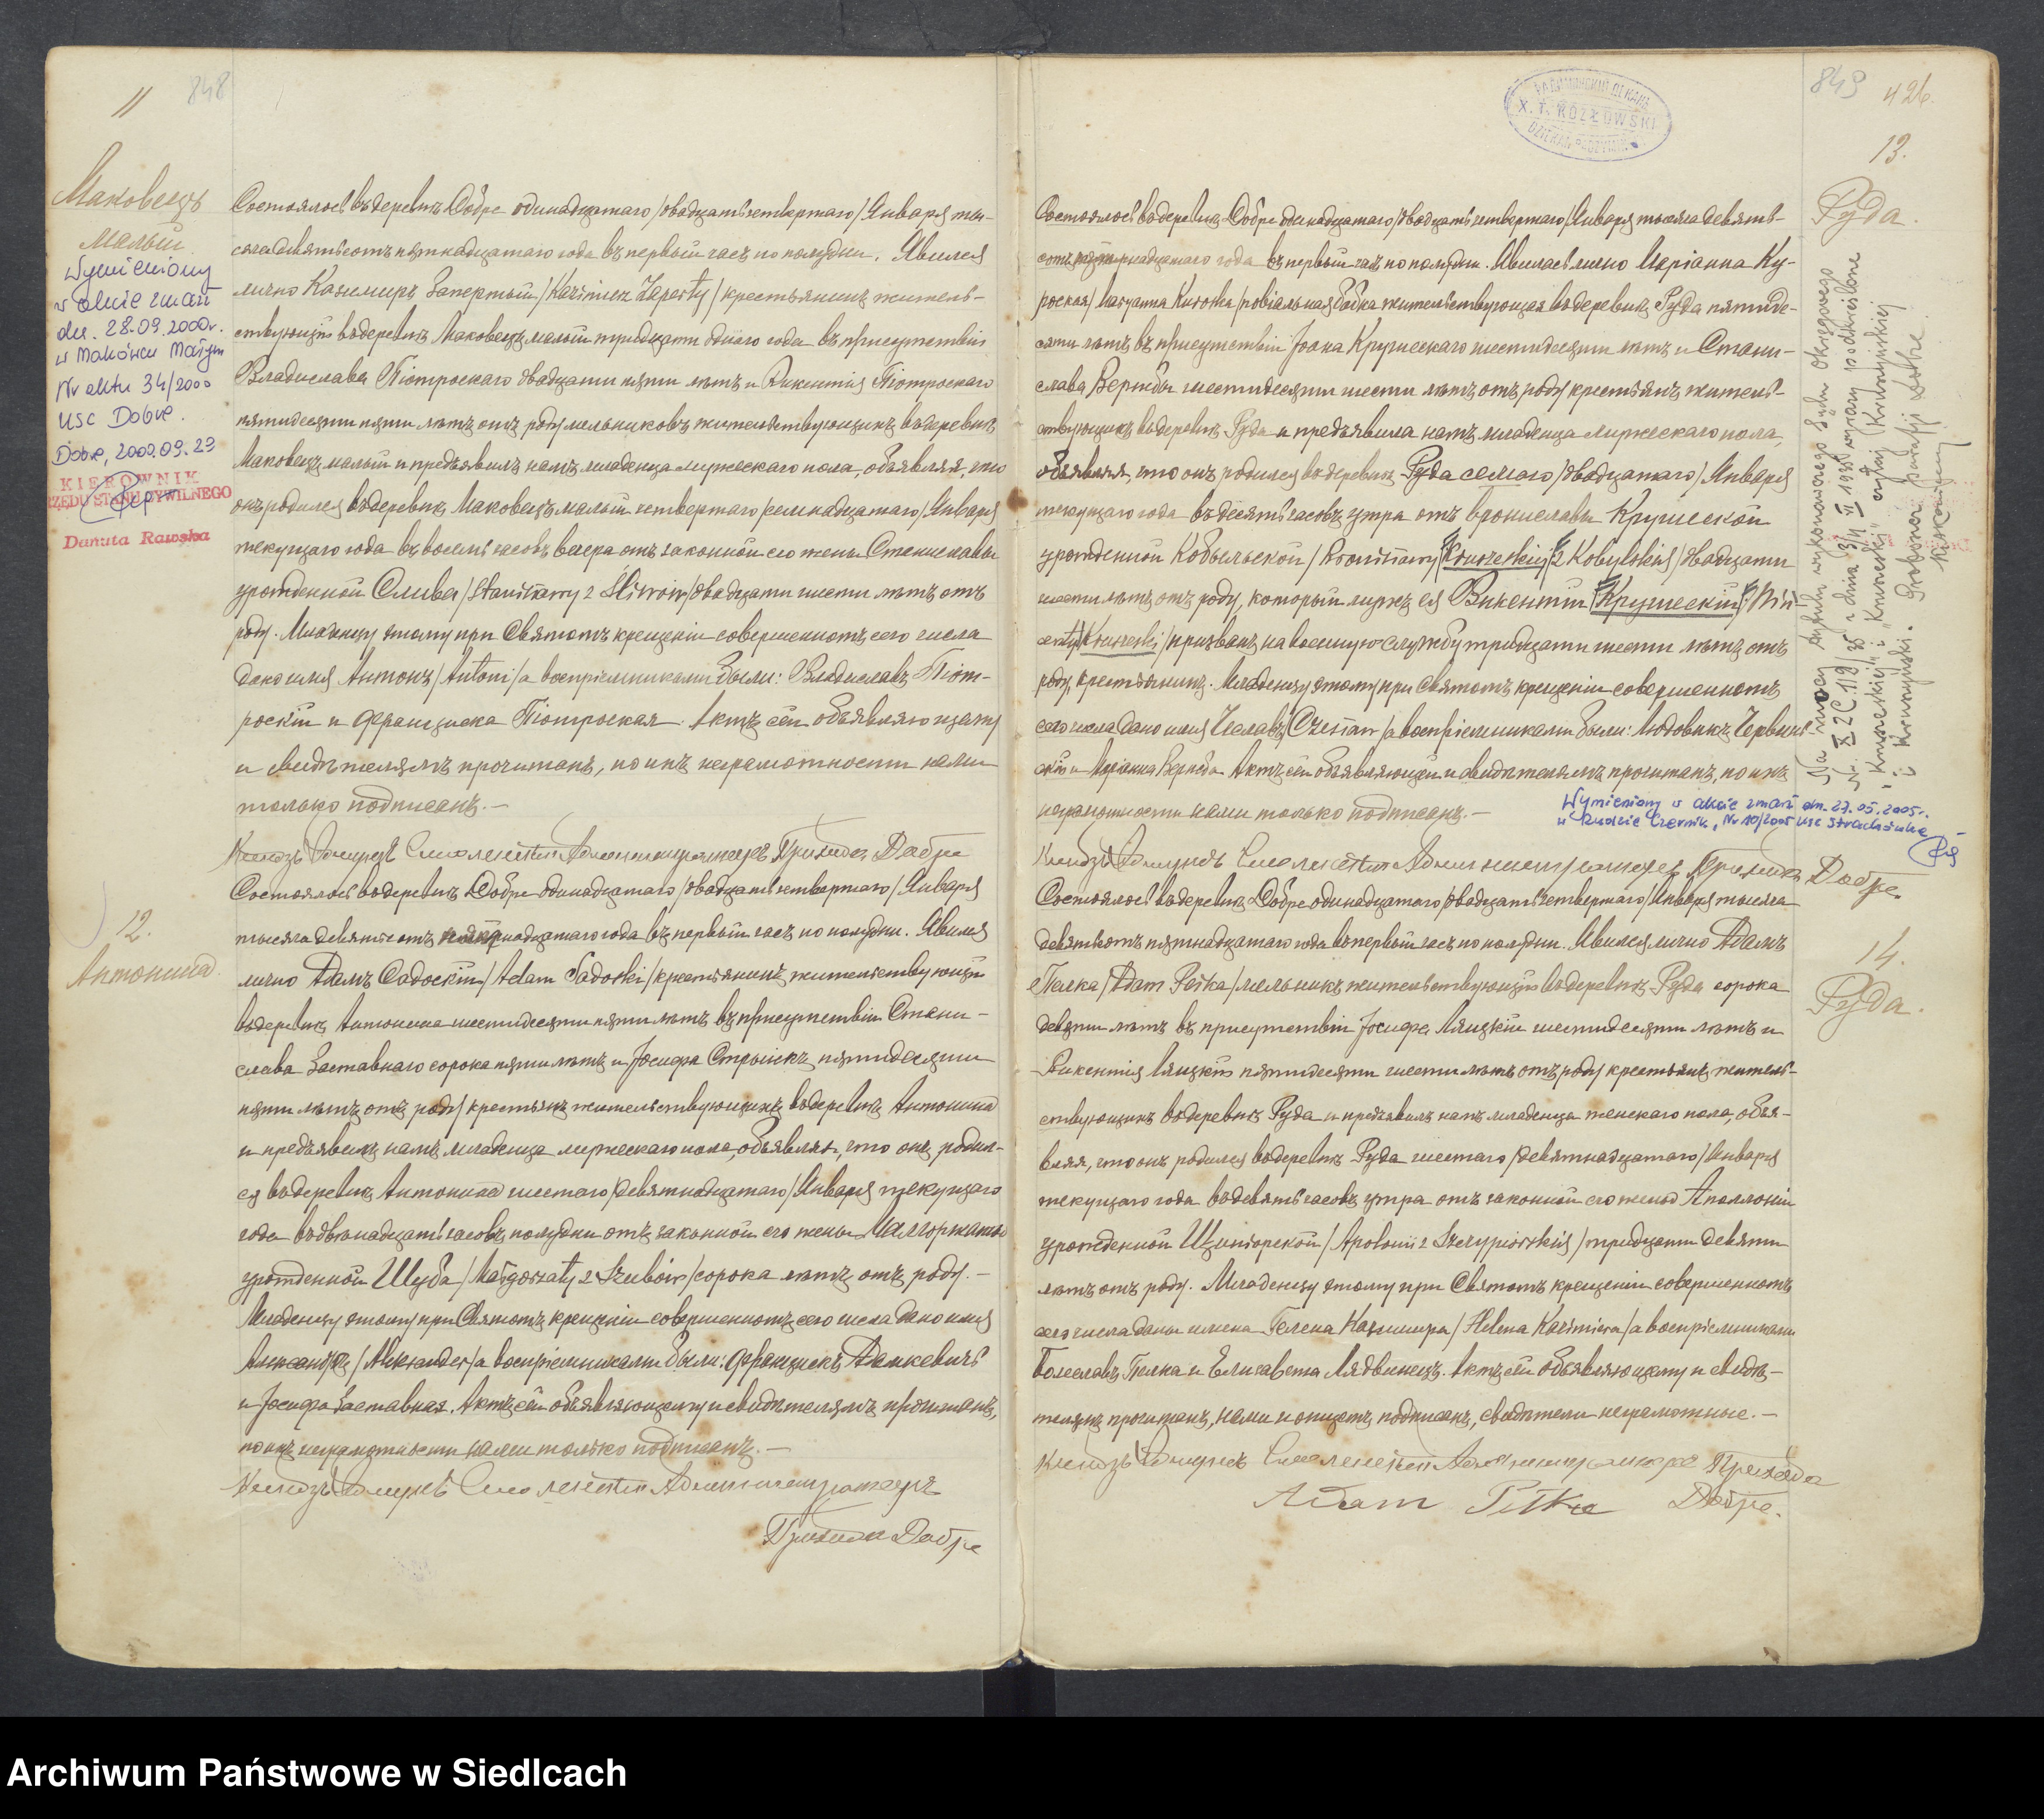 848
11
Маковецъ
Малый
Wymieniony
w akcie zmarł
dn. 28.09.2000r.
w Makówcu Małym
Nr aktu 34/2000
USC Dobre.
Dobre, 2000.09.29
KIEROWNIK
URZĘDU STANU CYWILNEGO
Danuta Rawska
Состоялось въ деревнѣ Добре одинадцатаго /двадцать четвертаго/ Января ты-
сяча девятьсотъ пятнадцатаго года въ первый часъ по полудни. Явился
лично Казимиръ Запертый /Kazimierz Zaperty/ крестьянинъ житель-
ствующій въ деревнѣ Маковецъ малый тридцати одного года въ присутствіи
Владислава Піотроскаго двадцати пяти лѣтъ и Викентія Піотроскаго
пятидесяти пяти лѣтъ отъ роду мельниковъ жительствующихъ въ деревнѣ
Маковецъ малый и предъявилъ намъ младенца мужескаго пола, объявляя, что
онъ родился въ деревнѣ Маковецъ малый четвертаго /семнадцатаго/ Января
текущаго года въ восемь часовъ вечера отъ законной его жены Станиславы
урожденной Слива /Stanisławy z Śliwów/ двадцати шести лѣтъ отъ
роду. Младенцу этому при Святомъ крещеніи совершенномъ сего числа
дано имя Антонъ /Antoni/ а воспріемниками были: Владиславъ Піот-
роскій и Францишка Піотроская. Актъ сей объявляющему
и свидѣтелямъ прочитанъ, по ихъ неграмотности нами
только подписанъ.—
Ксендзъ Администраторъ Прихода Добре
12.
Антонина
Состоялось въ деревнѣ Добре одинадцатаго /двадцать четвертаго/ Января
тысяча девятьсотъ пятнадцатаго года въ первый часъ по полудни. Явился
лично Адамъ Садоскій /Adam Sadoski/ крестьянинъ жительствующій
въ деревнѣ Антонина шестидесяти пяти лѣтъ въ присутствіи Стани-
слава Заставнаго сорока пяти лѣтъ и Іосифа Стрыйекъ пятидесяти
пяти лѣтъ отъ роду крестьянъ жительствующихъ въ деревнѣ Антонина
и предъявилъ намъ младенца мужескаго пола, объявляя, что онъ родил-
ся въ деревнѣ Антонина шестаго /девятнадцатаго/ Января текущаго
года въ двѣнадцать часовъ полудни отъ законной его жены Малгоржаты
урожденной Шуба /Małgorzaty z Szubów/ сорока лѣтъ отъ роду.—
Младенцу этому при Святомъ крещеніи совершенномъ сего числа дано имя
Александръ /Aleksander/ а воспріемниками были: Францишекъ Адамкевичъ
и Іосифа Заставная. Актъ сей объявляющему и свидѣтелямъ прочитанъ,
по ихъ неграмотности нами только подписанъ.—
Ксендзъ Администраторъ
Прихода Добре
X. T. KOZŁOWSKI
849
426.
13.
Руда.
Состоялось въ деревнѣ Добре одинадцатаго /двадцать четвертаго/ Января тысяча девять-
сотъ пятнадцатаго года въ первый часъ по полудни. Явилась лично Маріанна Ку-
роская /Maryanna Kuroska/ повіальная бабка жительствующая въ деревнѣ Руда пятиде-
сяти лѣтъ въ присутствіи Іоана Кружескаго шестидесяти лѣтъ и Стани-
слава Вержбы шестидесяти шести лѣтъ отъ роду крестьянъ житель-
ствующихъ въ деревнѣ Руда и предъявила намъ младенца мужескаго пола,
объявляя, что онъ родился въ деревнѣ Руда седмаго /двадцатаго/ Января
текущаго года въ десять часовъ утра отъ Брониславы Кружеской
урожденной Кобыльской /Bronisławy Kruszeskiej z Kobylskich/ двадцати
шести лѣтъ отъ роду, который мужъ ея Викентій Кружескій /Win-
centy Kruszeski/ призванъ на военную службу тридцати шести лѣтъ отъ
роду, крестьянинъ. Младенцу этому при Святомъ крещеніи совершенномъ
сего числа дано имя Чеславъ /Czesław/ а воспріемниками были: Людовикъ Червин-
скій и Маріанна Вержба. Актъ сей объявляющей и свидѣтелямъ прочитанъ, по ихъ
неграмотности нами только подписанъ.—
Wymieniony w akcie zmarł dn. 27.05.2005r.
w Rudzie Czernik, Nr 10/2005 USC Strachówka
Na mocy wyroku Sądu Okręgowego
Nr. X 2C 119/35 z dnia 3/4 II 1936 wyrazy podkreślone
Ксендзъ Администраторъ Прихода Добре.
14.
Руда.
Состоялось въ деревнѣ Добре одинадцатаго /двадцать четвертаго/ Января тысяча
девятьсотъ пятнадцатаго года въ первый часъ по полудни. Явился лично Адамъ
Пелка /Adam Pełka/ мельникъ жительствующій въ деревнѣ Руда сорока
девяти лѣтъ въ присутствіи Іосифа Ляцкій шестидесяти лѣтъ и
Викентія Ляцкій пятидесяти шести лѣтъ отъ роду крестьянъ житель-
ствующихъ въ деревнѣ Руда и предъявилъ намъ младенца женскаго пола, объя-
вляя, что онъ родился въ деревнѣ Руда шестаго /девятнадцатаго/ Января
текущаго года въ девять часовъ утра отъ законной его жены Аполлоніи
урожденной Щипіорской /Apolonii z Szczypiorskich/ тридцати девяти
лѣтъ отъ роду. Младенцу этому при Святомъ крещеніи совершенномъ
сего числа даны имена Гелена Казимира /Helena Kazimiera/ а воспріемниками
Болеславъ Пелка и Елисавета Лядвинецъ. Актъ сей объявляющему и свидѣ-
телямъ прочитанъ, нами и отцемъ подписанъ, свидѣтели неграмотные.—
Ксендзъ Администраторъ Прихода
Adam Pełka Добре.
Archiwum Państwowe w Siedlcach